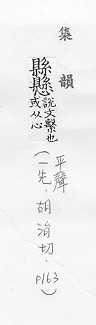 集韻
縣懸說文繫也
或从心
(平聲
一先,胡涓切,
p163)